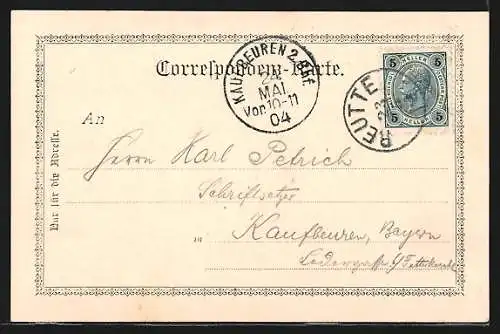 Correspondenz-Karte.
KAUFBEUREN 2. BHF.
24
MAI.
Vor. 10-11
04
REUTTE
5 HELLER 5
5 HELLER 5
An
Nur für die Adresse.
Herrn Karl Petrich
Schriftsetzer
in Kaufbeuren, Bayern